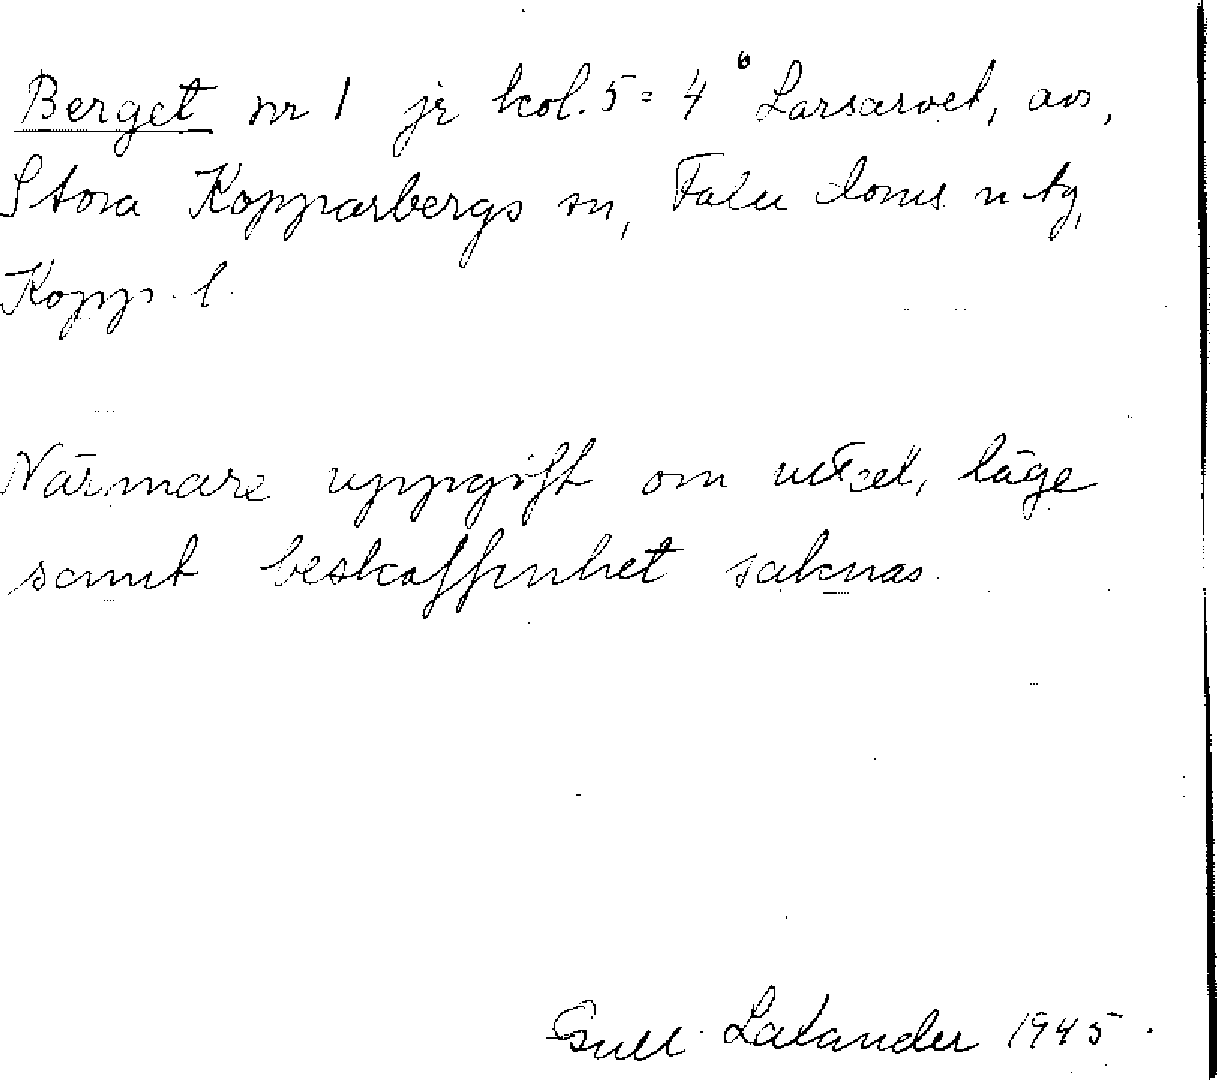 Berget nr 1 jr kol. 5 = 4⁶ Larsarvet, avs,
Stora Kopparbergs sn, Falu doms ntg,
Kopp. l.
Närmare uppgift om uttal, läge
samt beskaffenhet saknas.
Gull Latander 1945.